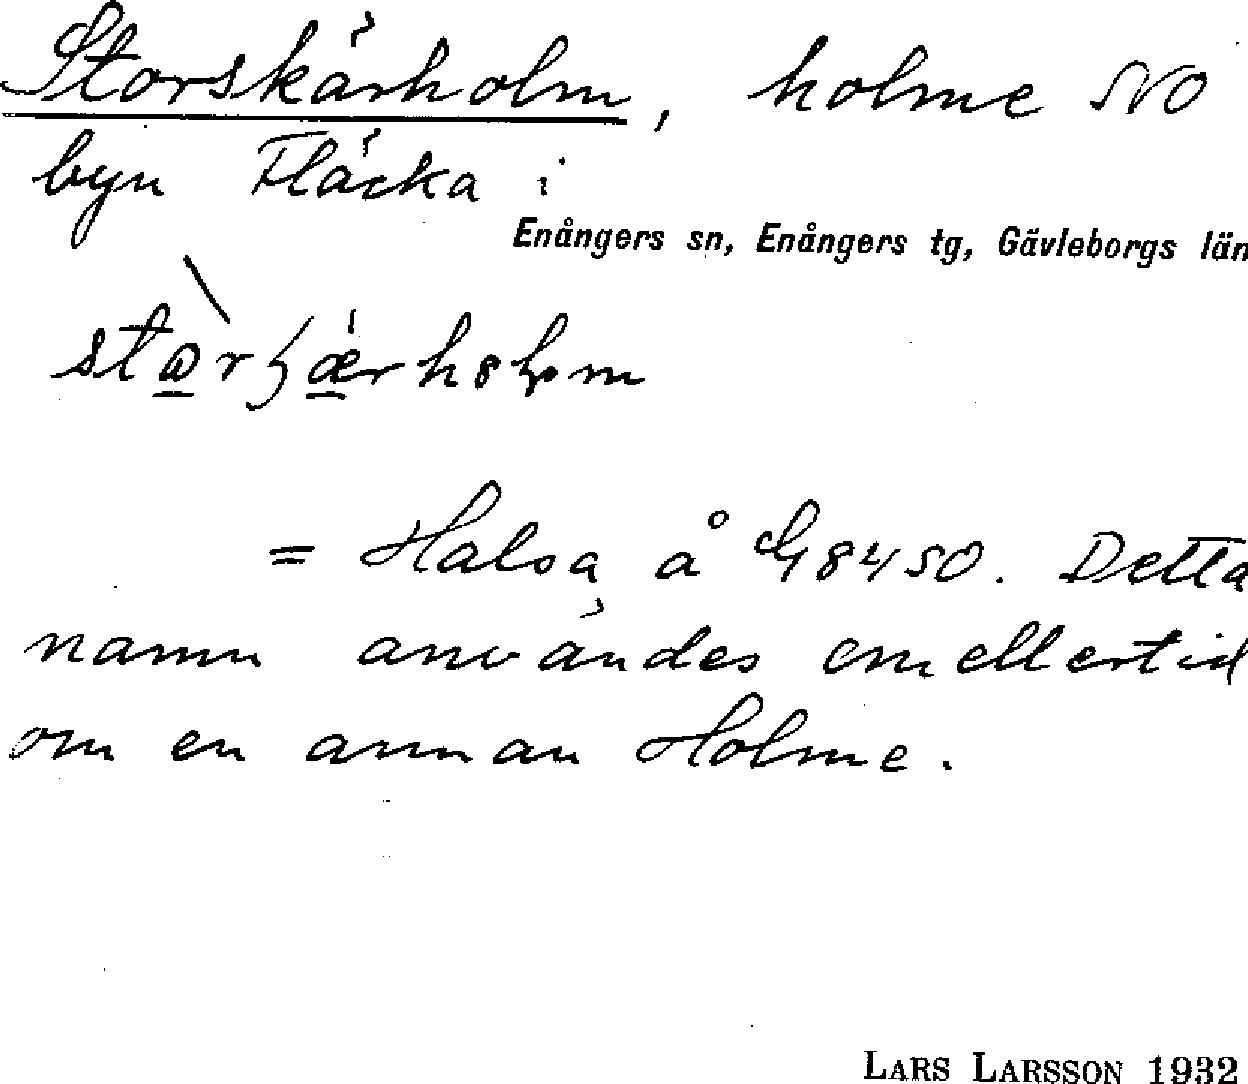 Storskärholm, holme SVO
byn Fläcka i
Enångers sn, Enångers tg, Gävleborgs län
= Halsa å G 8450. Detta
namn användes emellertid
om en annan Holme.
LARS LARSSON 1932